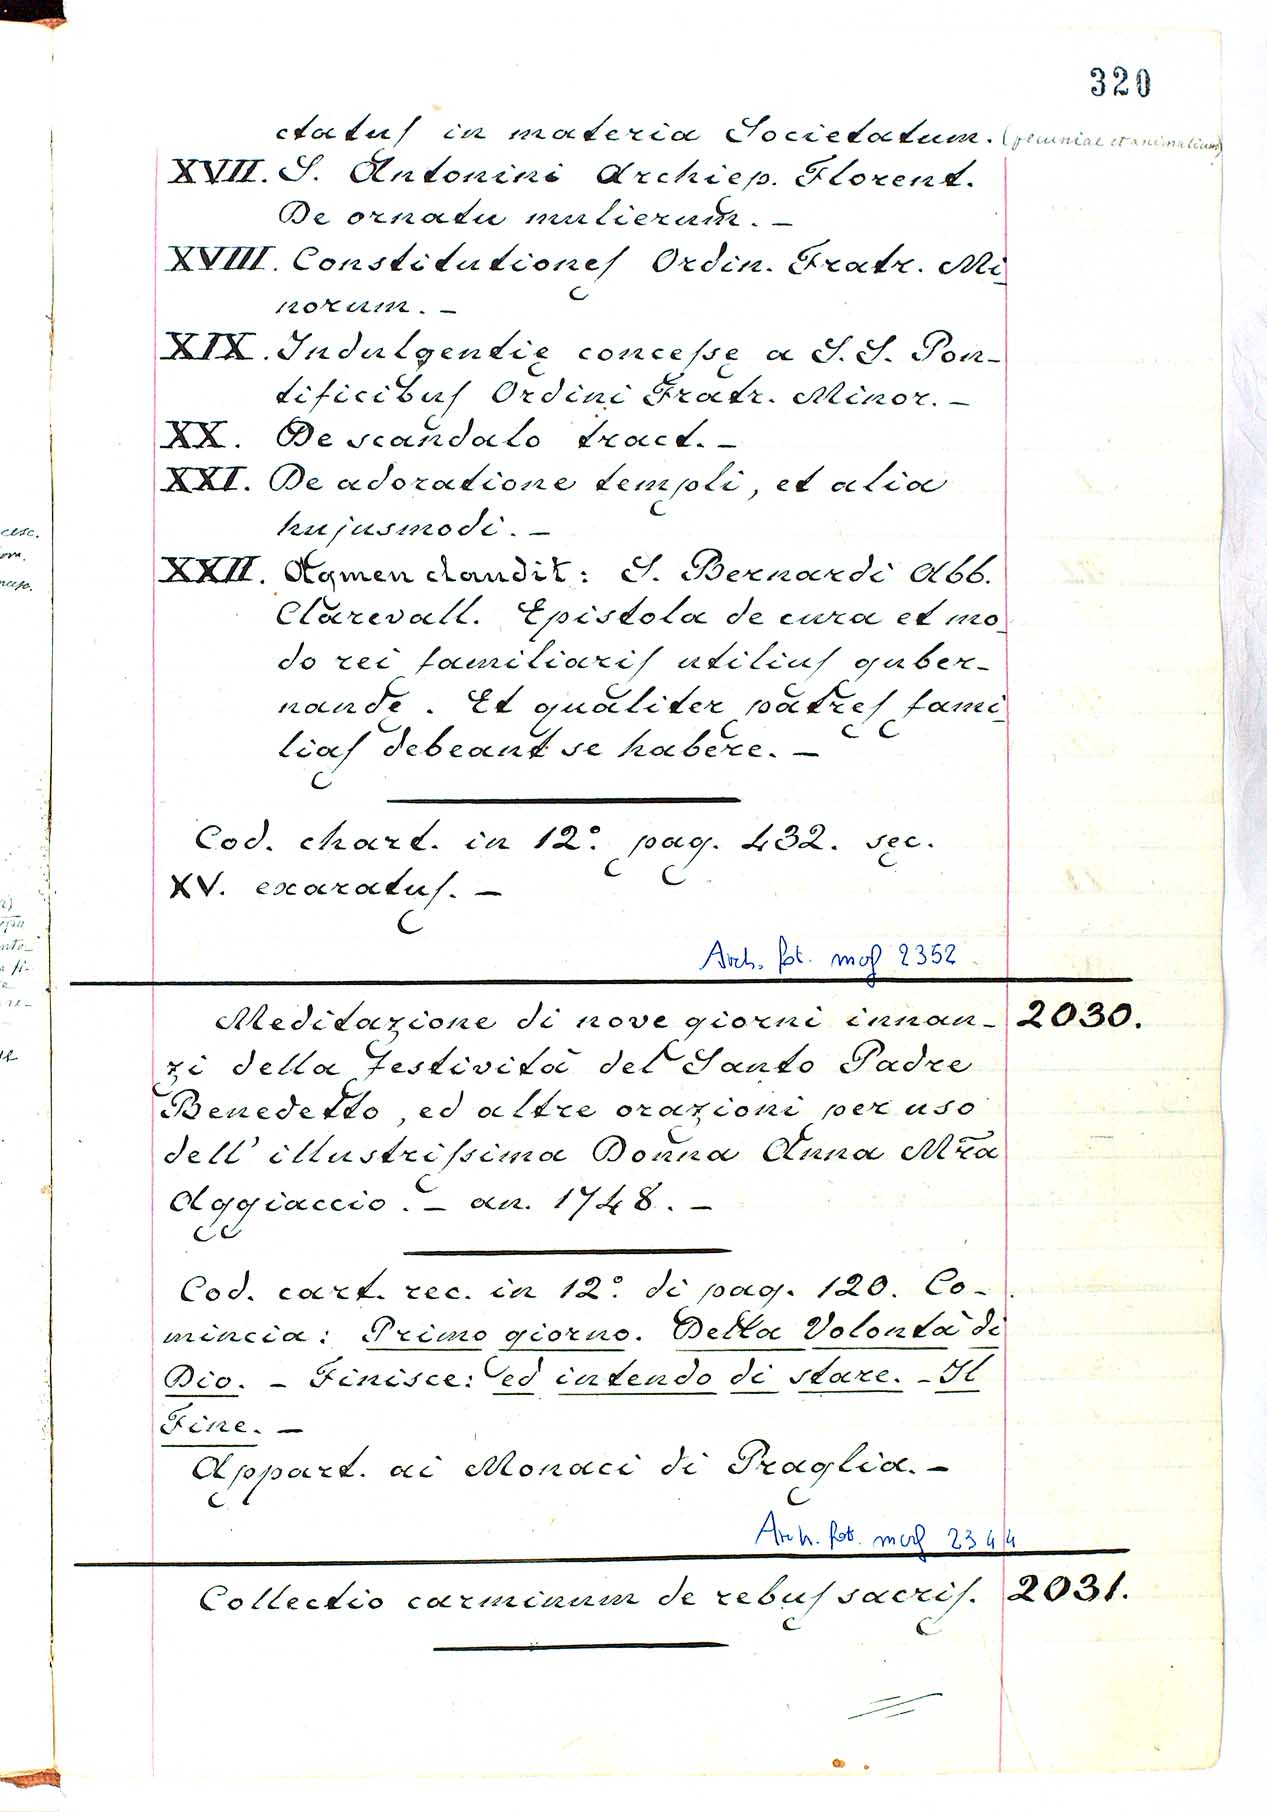 320
ctatus in materia Societatum. (pecuniae et animalium)
XVII. S. Antonini Archiep. Florent.
De ornatu mulierum. –
XVIII. Constitutiones Ordin. Fratr. Mi-
norum. –
XIX. Indulgentię concessę a S. S. Pon-
tificibus Ordini Fratr. Minor. –
XX. De scandalo tract. –
XXI. De adoratione templi, et alia
hujusmodi. –
XXII. Agmen claudit: S. Bernardi Abb.
Clarevall. Epistola de cura et mo-
do rei familiaris utilius guber-
nandę. Et qualiter patres fami-
lias debeant se habere. –
Cod. chart. in 12.° pag. 432. sęc.
XV. exaratus. –
Arch. fot. mof 2352
Meditazione di nove giorni innan- 2030.
zi della Festività del Santo Padre
Benedetto, ed altre orazioni per uso
dell' illustrissima Donna Anna Mr̃a
Aggiaccio. – an. 1748. –
Cod. cart. rec. in 12.° di pag. 120. Co-
mincia: Primo giorno. Della Volontà di
Dio. – Finisce: ed intendo di stare. – Il
Fine. –
Appart. ai Monaci di Praglia. –
Arch. fot. mof 2344
Collectio carminum de rebus sacris. 2031.
cesc.